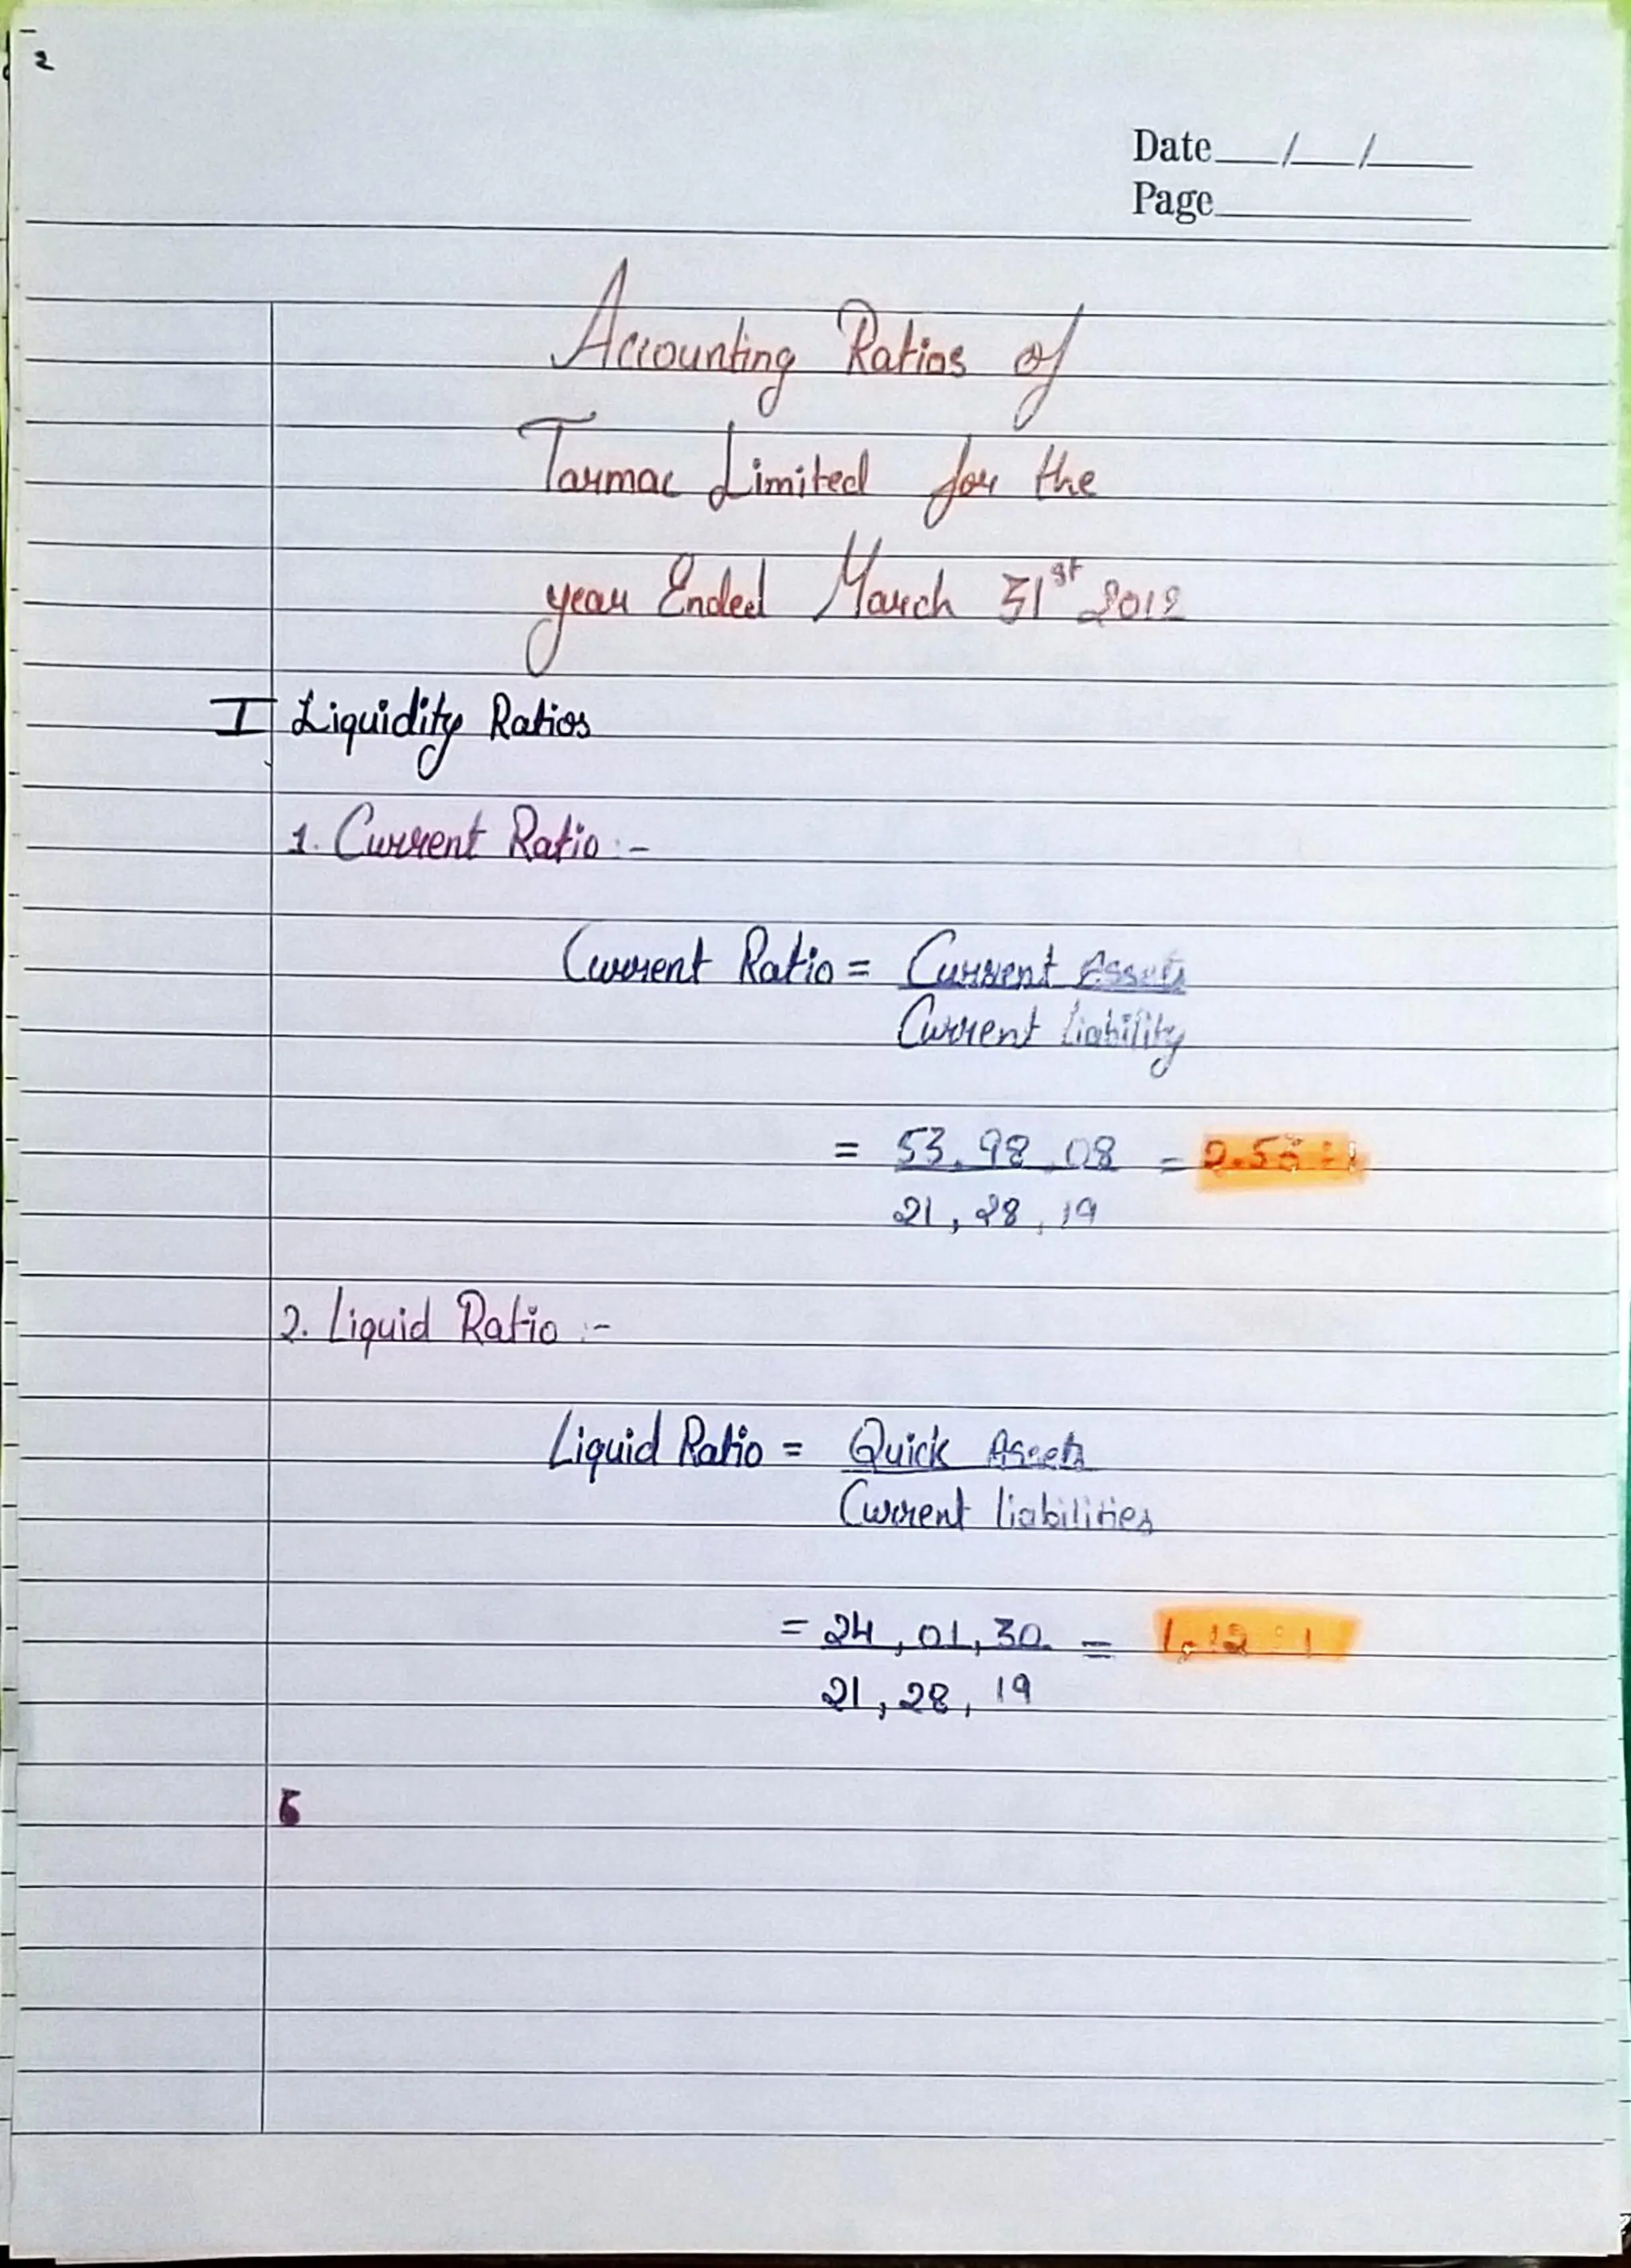 2
Date___/___/_____
Page_____________
Accounting Ratios of
Tarmac Limited for the
year Ended March 31st 2012
I Liquidity Ratios
1. Current Ratio :-
Current Ratio = Current Assets
Current liability
= 53,98,08 =
21,28,19
2. Liquid Ratio :-
Liquid Ratio = Quick Assets
Current liabilities
= 24,01,30 = 1.12 : 1
21,28,19